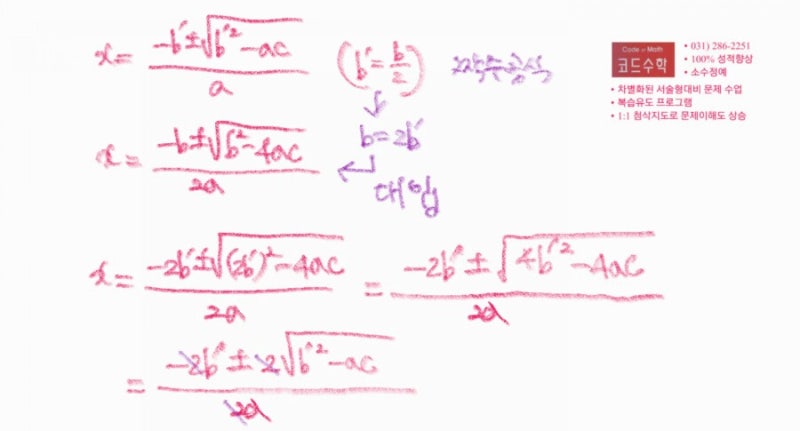 x = (-b' ± √(b'² - ac)) / a (b' = b/2) 짝수공식
x = (-b ± √(b² - 4ac)) / 2a b = 2b'
대입
x = (-2b' ± √((2b')² - 4ac)) / 2a = (-2b' ± √(4b'² - 4ac)) / 2a
= (-2b' ± 2√(b'² - ac)) / 2a
Code in Math
코드수학
• 031) 286-2251
• 100% 성적향상
• 소수정예
• 차별화된 서술형대비 문제 수업
• 복습유도 프로그램
• 1:1 첨삭지도로 문제이해도 상승